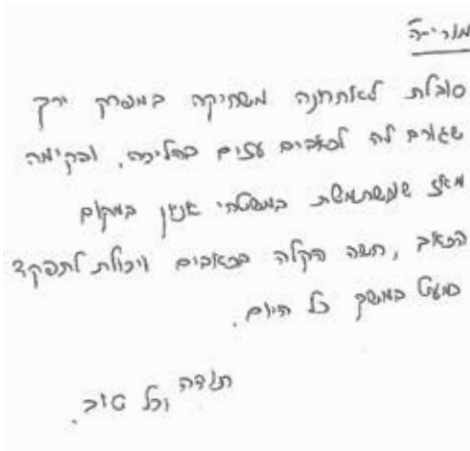 מורייה
סובלת לאחרונה משחיקה במפרק ירך
שגורם לה לכאבים עזים בהליכה, ובקימה
מאז שמשתמשת במשטחי אנין במקום
הכאב, חשה הקלה בכאבים ויכולת לתפקד
כמעט במשך כל היום.
תודה וכל טוב.